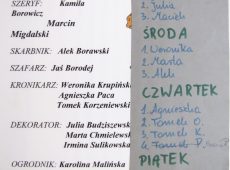 SZERYF: Kamila
Borowicz
Marcin
Migdalski
SKARBNIK: Alek Borawski
SZAFARZ: Jaś Borodej
KRONIKARZ: Weronika Krupińs
Agnieszka Paca
Tomek Korzeniewski
DEKORATOR: Julia Budziszews
Marta Chmielews
Irmina Sulikowska
OGRODNIK: Karolina Malińska
2. Julia
3. Maciek
ŚRODA
1. Weronika
2. Marta
3. Alek
CZWARTEK
1. Agnieszka
2. Tomek O.
3. Tomek K.
4. Tomek P.
PIĄTEK